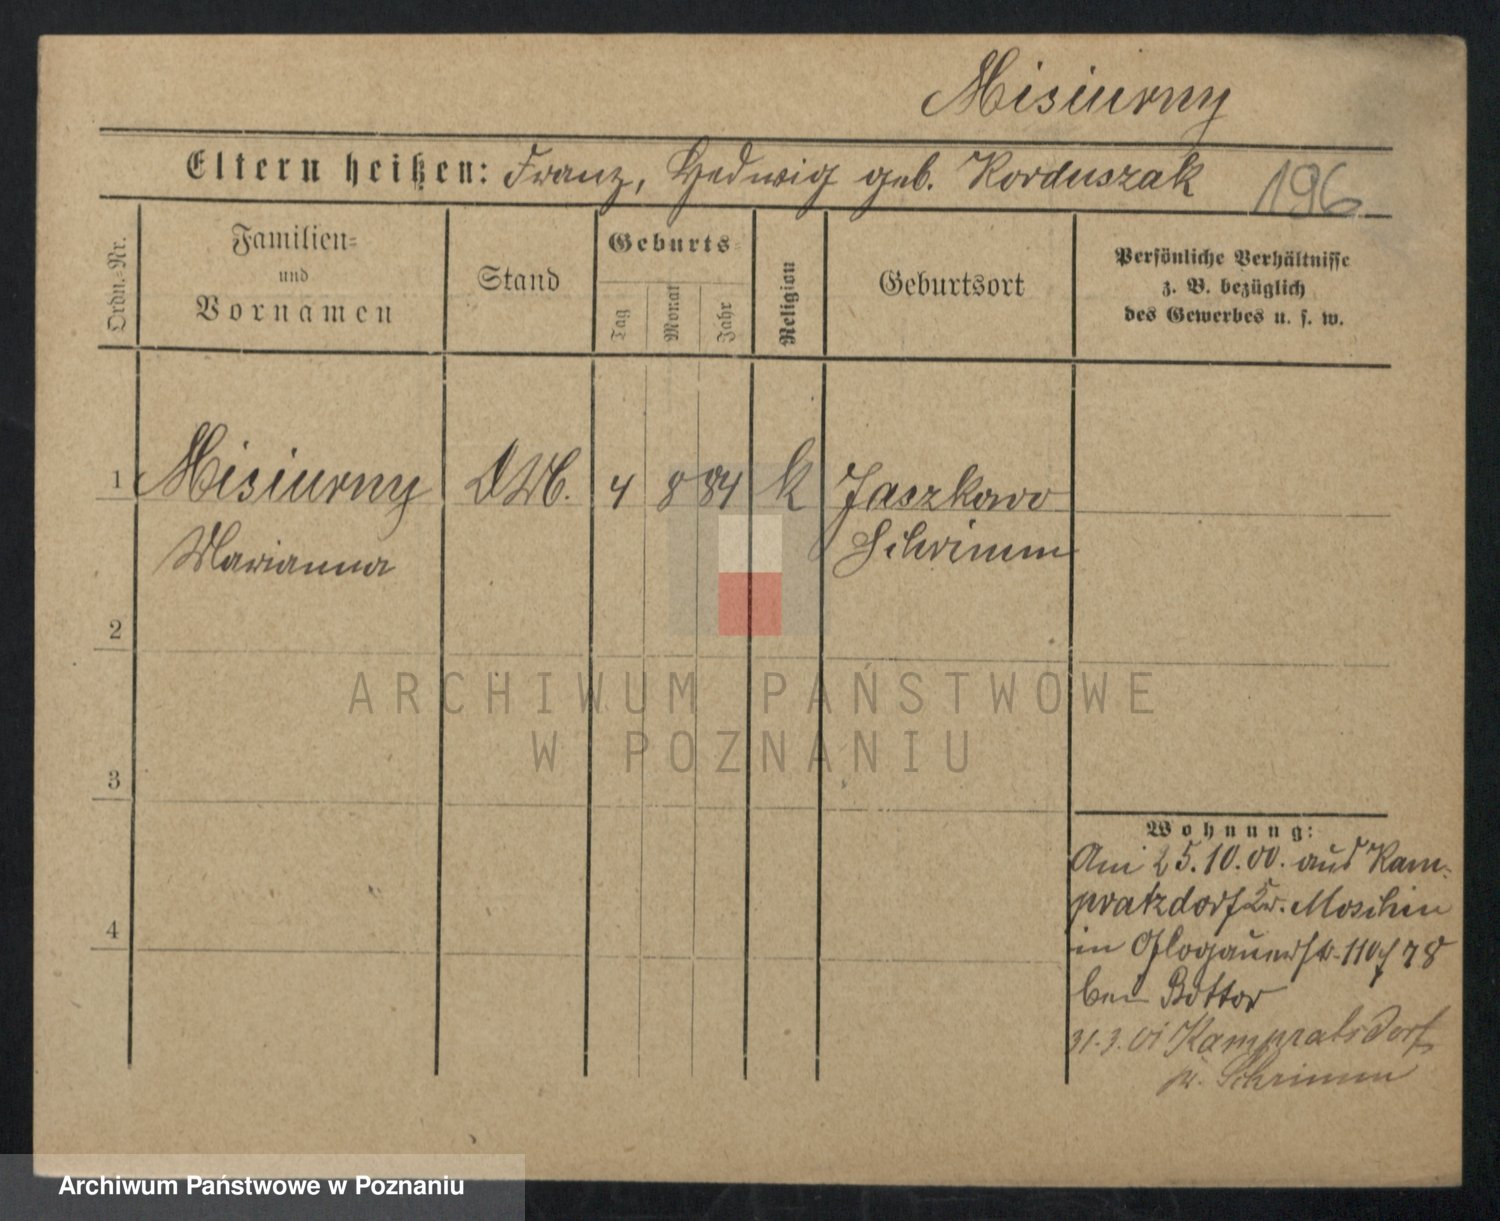 Misiurny
Eltern heißen: Franz, Hedwig geb. Korduszak 196
Ordn.-Nr.
Familien-
und
Vornamen
Stand
Geburts-
Tag
Monat
Jahr
Religion
Geburtsort
Persönliche Verhältnisse
z. B. bezüglich
des Gewerbes u. s. w.
1 Misiurny DM. 4 8 84 k Jaszkowo
Marianna Schrimm
2
ARCHIWUM PAŃSTWOWE
W POZNANIU
3
Wohnung:
Am 25.10.00. aus Kam-
pratzdorf Kr. Moschin
in Glogauerstr. 110/78
bei Bottor
4
31.3.01 Kampratsdorf
Kr. Schrimm
Archiwum Państwowe w Poznaniu